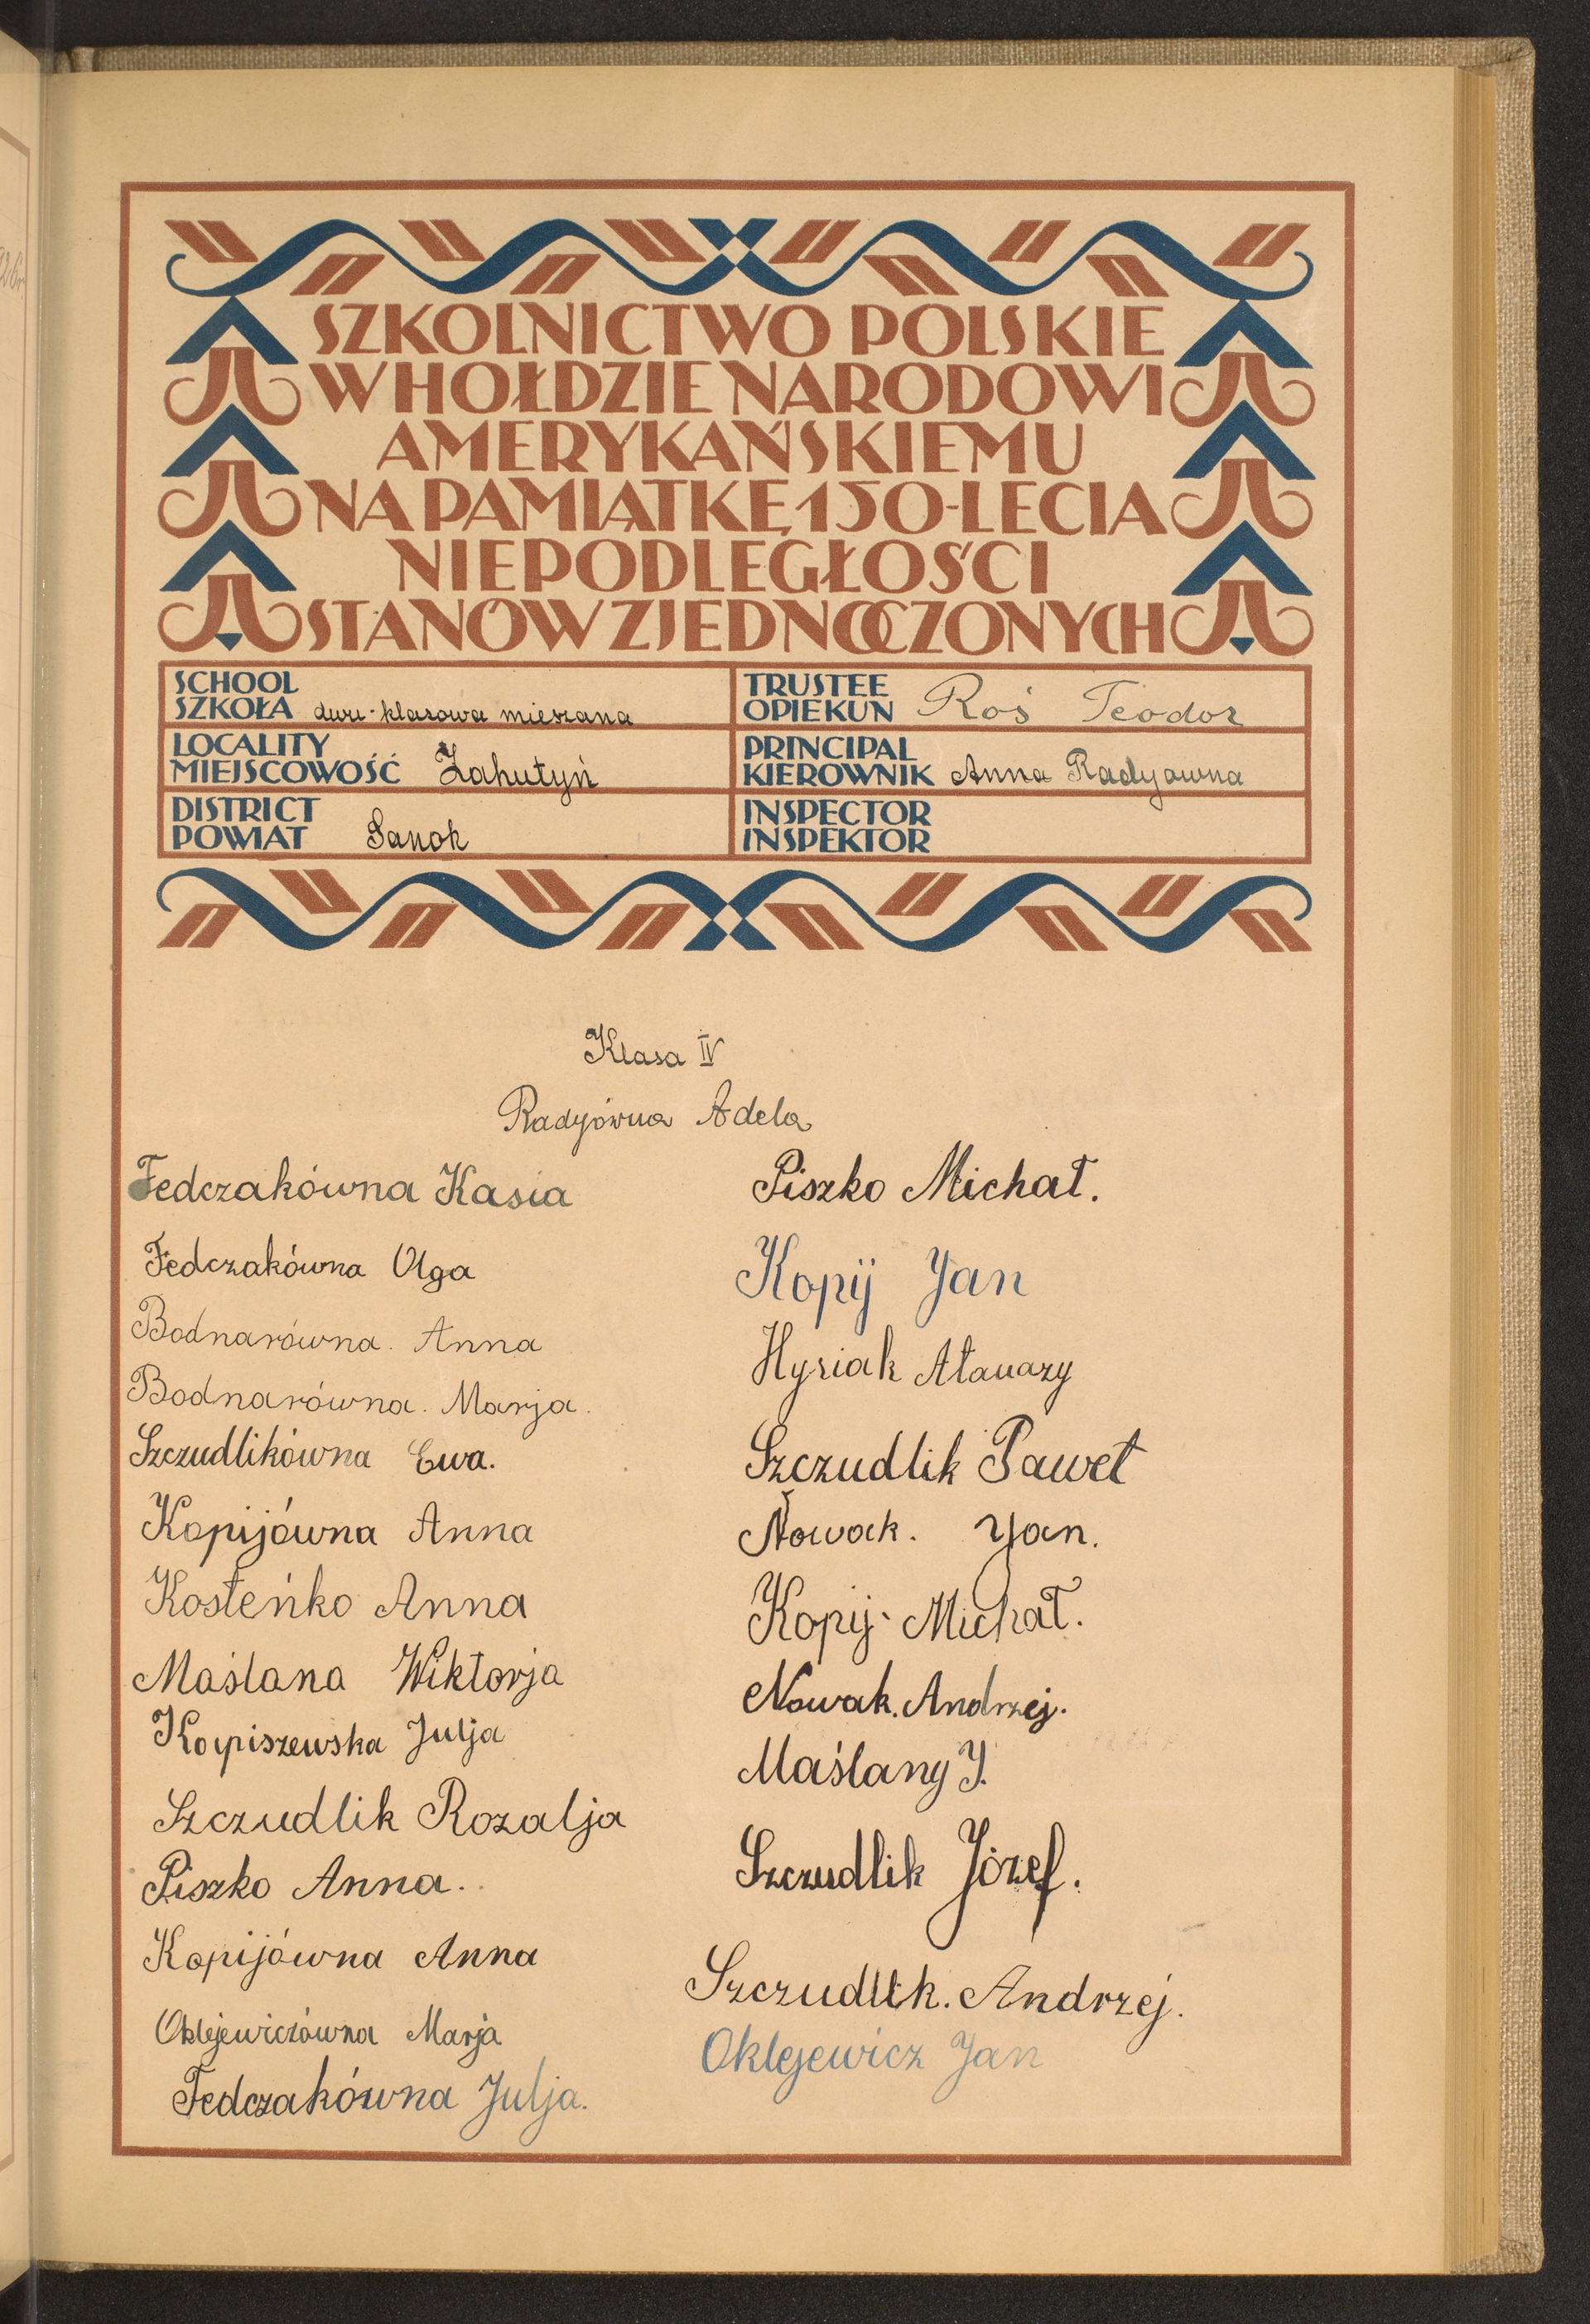 SZKOLNICTWO POLSKIE
W HOŁDZIE NARODOWI
AMERYKAŃSKIEMU
NA PAMIĄTKĘ 150-LECIA
NIEPODLEGŁOŚCI
STANÓW ZJEDNOCZONYCH
SCHOOL
SZKOŁA dwu-klasowa mieszana
TRUSTEE
OPIEKUN Roś Teodor
LOCALITY
MIEJSCOWOŚĆ Zahutyń
PRINCIPAL
KIEROWNIK Anna Radyówna
DISTRICT
POWIAT Sanok
INSPECTOR
INSPEKTOR
Klasa IV
Radyówna Adela
Fedczakówna Kasia
Fedczakówna Olga
Bodnarówna. Anna
Bodnarówna. Marja.
Szczudlikówna Ewa.
Kopijówna Anna
Kosteńko Anna
Maślana Wiktorja
Korpiszewska Julja
Szczudlik Rozalja
Piszko Anna.
Kopijówna Anna
Oklejewiczówna Marja
Fedczakówna Julja.
Piszko Michał.
Kopij Jan
Hysiak Atanazy
Szczudlik Paweł
Nowak. Jan.
Kopij Michał.
Nowak. Andrzej.
Maślany J.
Szczudlik Józef.
Szczudlik. Andrzej.
Oklejewicz Jan